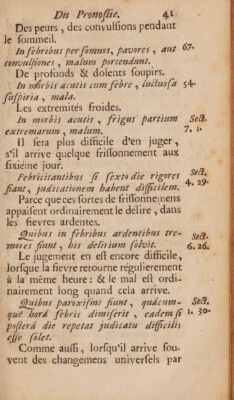 Du Pronostic. 41
Des peurs, des convulsions pendant
le sommeil.
In febribus per somnos, pavores, aut 67.
convulsiones, malum portendunt.
De profonds & dolents soupirs.
In morbis acutis cum febre, luctuosa 54.
suspiria, mala.
Les extremités froides.
In morbis acutis, frigus partium Sect.
extremarum, malum. 7. 1.
Il sera plus difficile d'en juger,
s'il arrive quelque frissonnement aux
sixiéme jour.
Febricitantibus si sexto die rigores Sect.
fiant, judicationem habent difficilem. 4. 29.
Parce que ces sortes de frissonnemens
appaisent ordinairement le delire, dans
les fievres ardentes.
Quibus in febribus ardentibus tre- Sect.
mores fiunt, his delirium solvit. 6. 26.
Le jugement en est encore difficile,
lorsque la fievre retourne régulierement
à la même heure: & le mal est ordi-
nairement long quand cela arrive.
Quibus paroxismi fiunt, quâcum- Sect.
que horâ febris dimiserit, eadem si 1. 30.
posterâ die repetat judicatu difficilis
esse solet.
Comme aussi, lorsqu'il arrive sou-
vent des changemens universels par